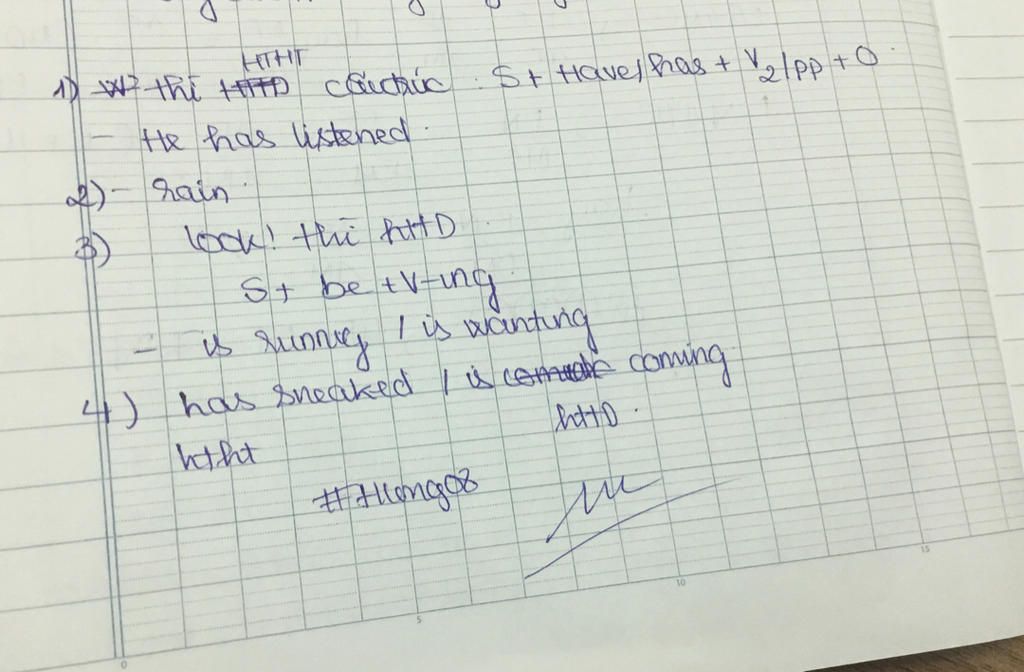 HTHT
1) thì cấu trúc : S + Have/has + V2/pp + O
- He has listened.
2) - rain.
3) look! thì htTD
S + be + V-ing
- is running / is wanting
4) has sneaked / is coming
htht htTD.
#Huong08
0 5 10 15